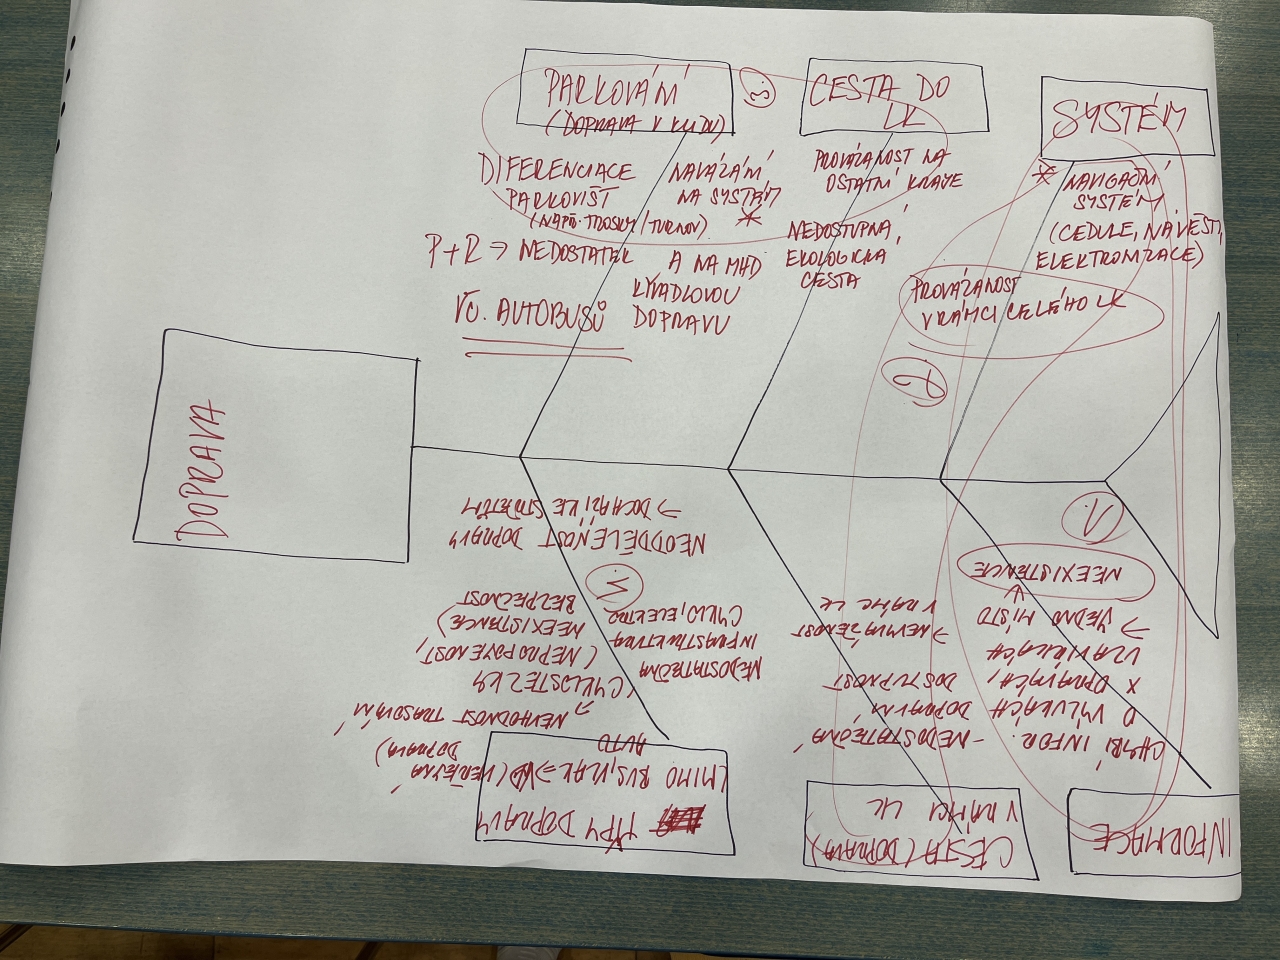 PARKOVÁNÍ
(DOPRAVA V KLIDU)
DIFERENCIACE
PARKOVIŠŤ
(NAPŘ. TROSKY/TURNOV)
P+R → NEDOSTATEK
VČ. AUTOBUSŮ
NAVÁZÁNÍ
NA SYSTÉM
*
A NA MHD
KYVADLOVOU
DOPRAVU
3.
CESTA DO
LK
PROVÁZANOST NA
OSTATNÍ KRAJE
NEDOSTUPNÁ,
EKOLOGICKÁ
CESTA
SYSTÉM
* NAVIGAČNÍ
SYSTÉM
(CEDULE, NÁVĚSTÍ,
ELEKTRONIZACE)
PROVÁZANOST
V RÁMCI CELÉHO LK
2.
DOPRAVA
TYPY DOPRAVY
(MIMO BUS, VLAK →
AUTO
VEŘEJNÁ
DOPRAVA)
→ NEVHODNOST TRASOVÁNÍ
(CYKLOSTEZKY
(NEPROPOJENOST,
NEEXISTENCE)
BEZPEČNOST
NEDOSTATEČNÁ
INFRASTRUKTURA
CYKLO, ELEKTRO
NEODDĚLENOST DOPRAVY
→ DOCHÁZÍ KE STŘETŮM
CESTA (DOPRAVA)
V RÁMCI LK
- NEDOSTATEČNÁ
DOPRAVNÍ
DOSTUPNOST
→ NEMOŽNOST
V RÁMCI LK
INFORMACE
CHYBÍ INFOR.
O VÝLUKÁCH
X OPRAVÁCH,
UZAVÍRKÁCH
→ JEDNO MÍSTO
NEEXISTENCE
1.